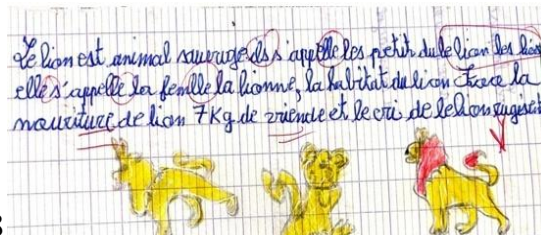 Le lion est animal sauvage ils s'appelle les petit du le lion les lion
elle s'appelle la femlle la lionne, la habitat du lion trace la
mouriture de lion 7Kg de vriende et le cri de le lion rugisent